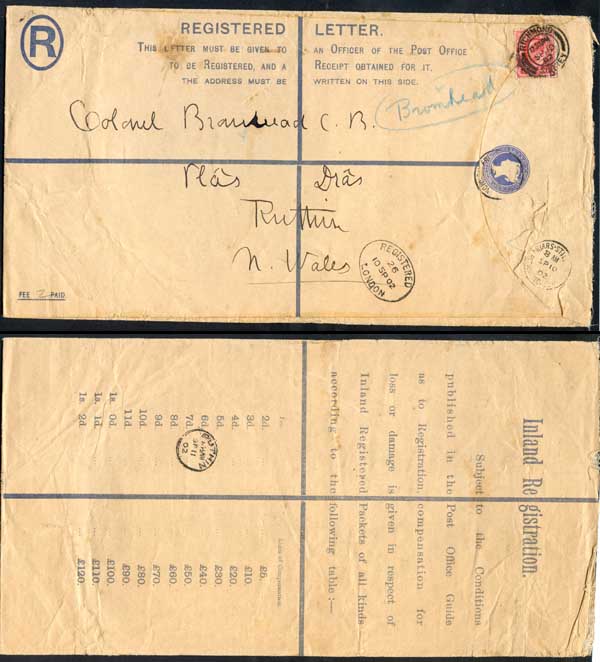 R
REGISTERED LETTER.
THIS LETTER MUST BE GIVEN TO AN OFFICER OF THE POST OFFICE
TO BE REGISTERED, AND A RECEIPT OBTAINED FOR IT.
THE ADDRESS MUST BE WRITTEN ON THIS SIDE.
RICHMOND
Bromhead
Colonel Bromhead C.B.
Plâs Drâs
Ruthin
N. Wales
REGISTERED
26
10 SP 02
LONDON
8 AM
SP 10
02
FEE 2 PAID
Inland Registration.
Subject to the Conditions
published in the Post Office Guide
as to Registration, compensation for
loss or damage is given in respect of
Inland Registered Packets of all kinds
according to the following table:—
Fee. Limit of Compensation.
2d. £5.
3d. £10.
4d. £20.
5d. £30.
6d. £40.
7d. £50.
8d. £60.
9d. £70.
10d. £80.
11d. £90.
1s. 0d. £100.
1s. 1d. £110.
1s. 2d. £120.
RUTHIN
SP 11
02